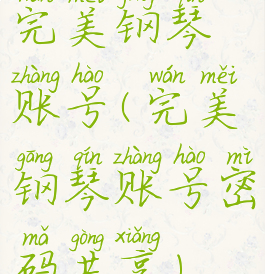 wán měi gāng qín
完美钢琴
zhàng hào wán měi
账号(完美
gāng qín zhàng hào mì
钢琴账号密
mǎ gòng xiǎng
码共享)